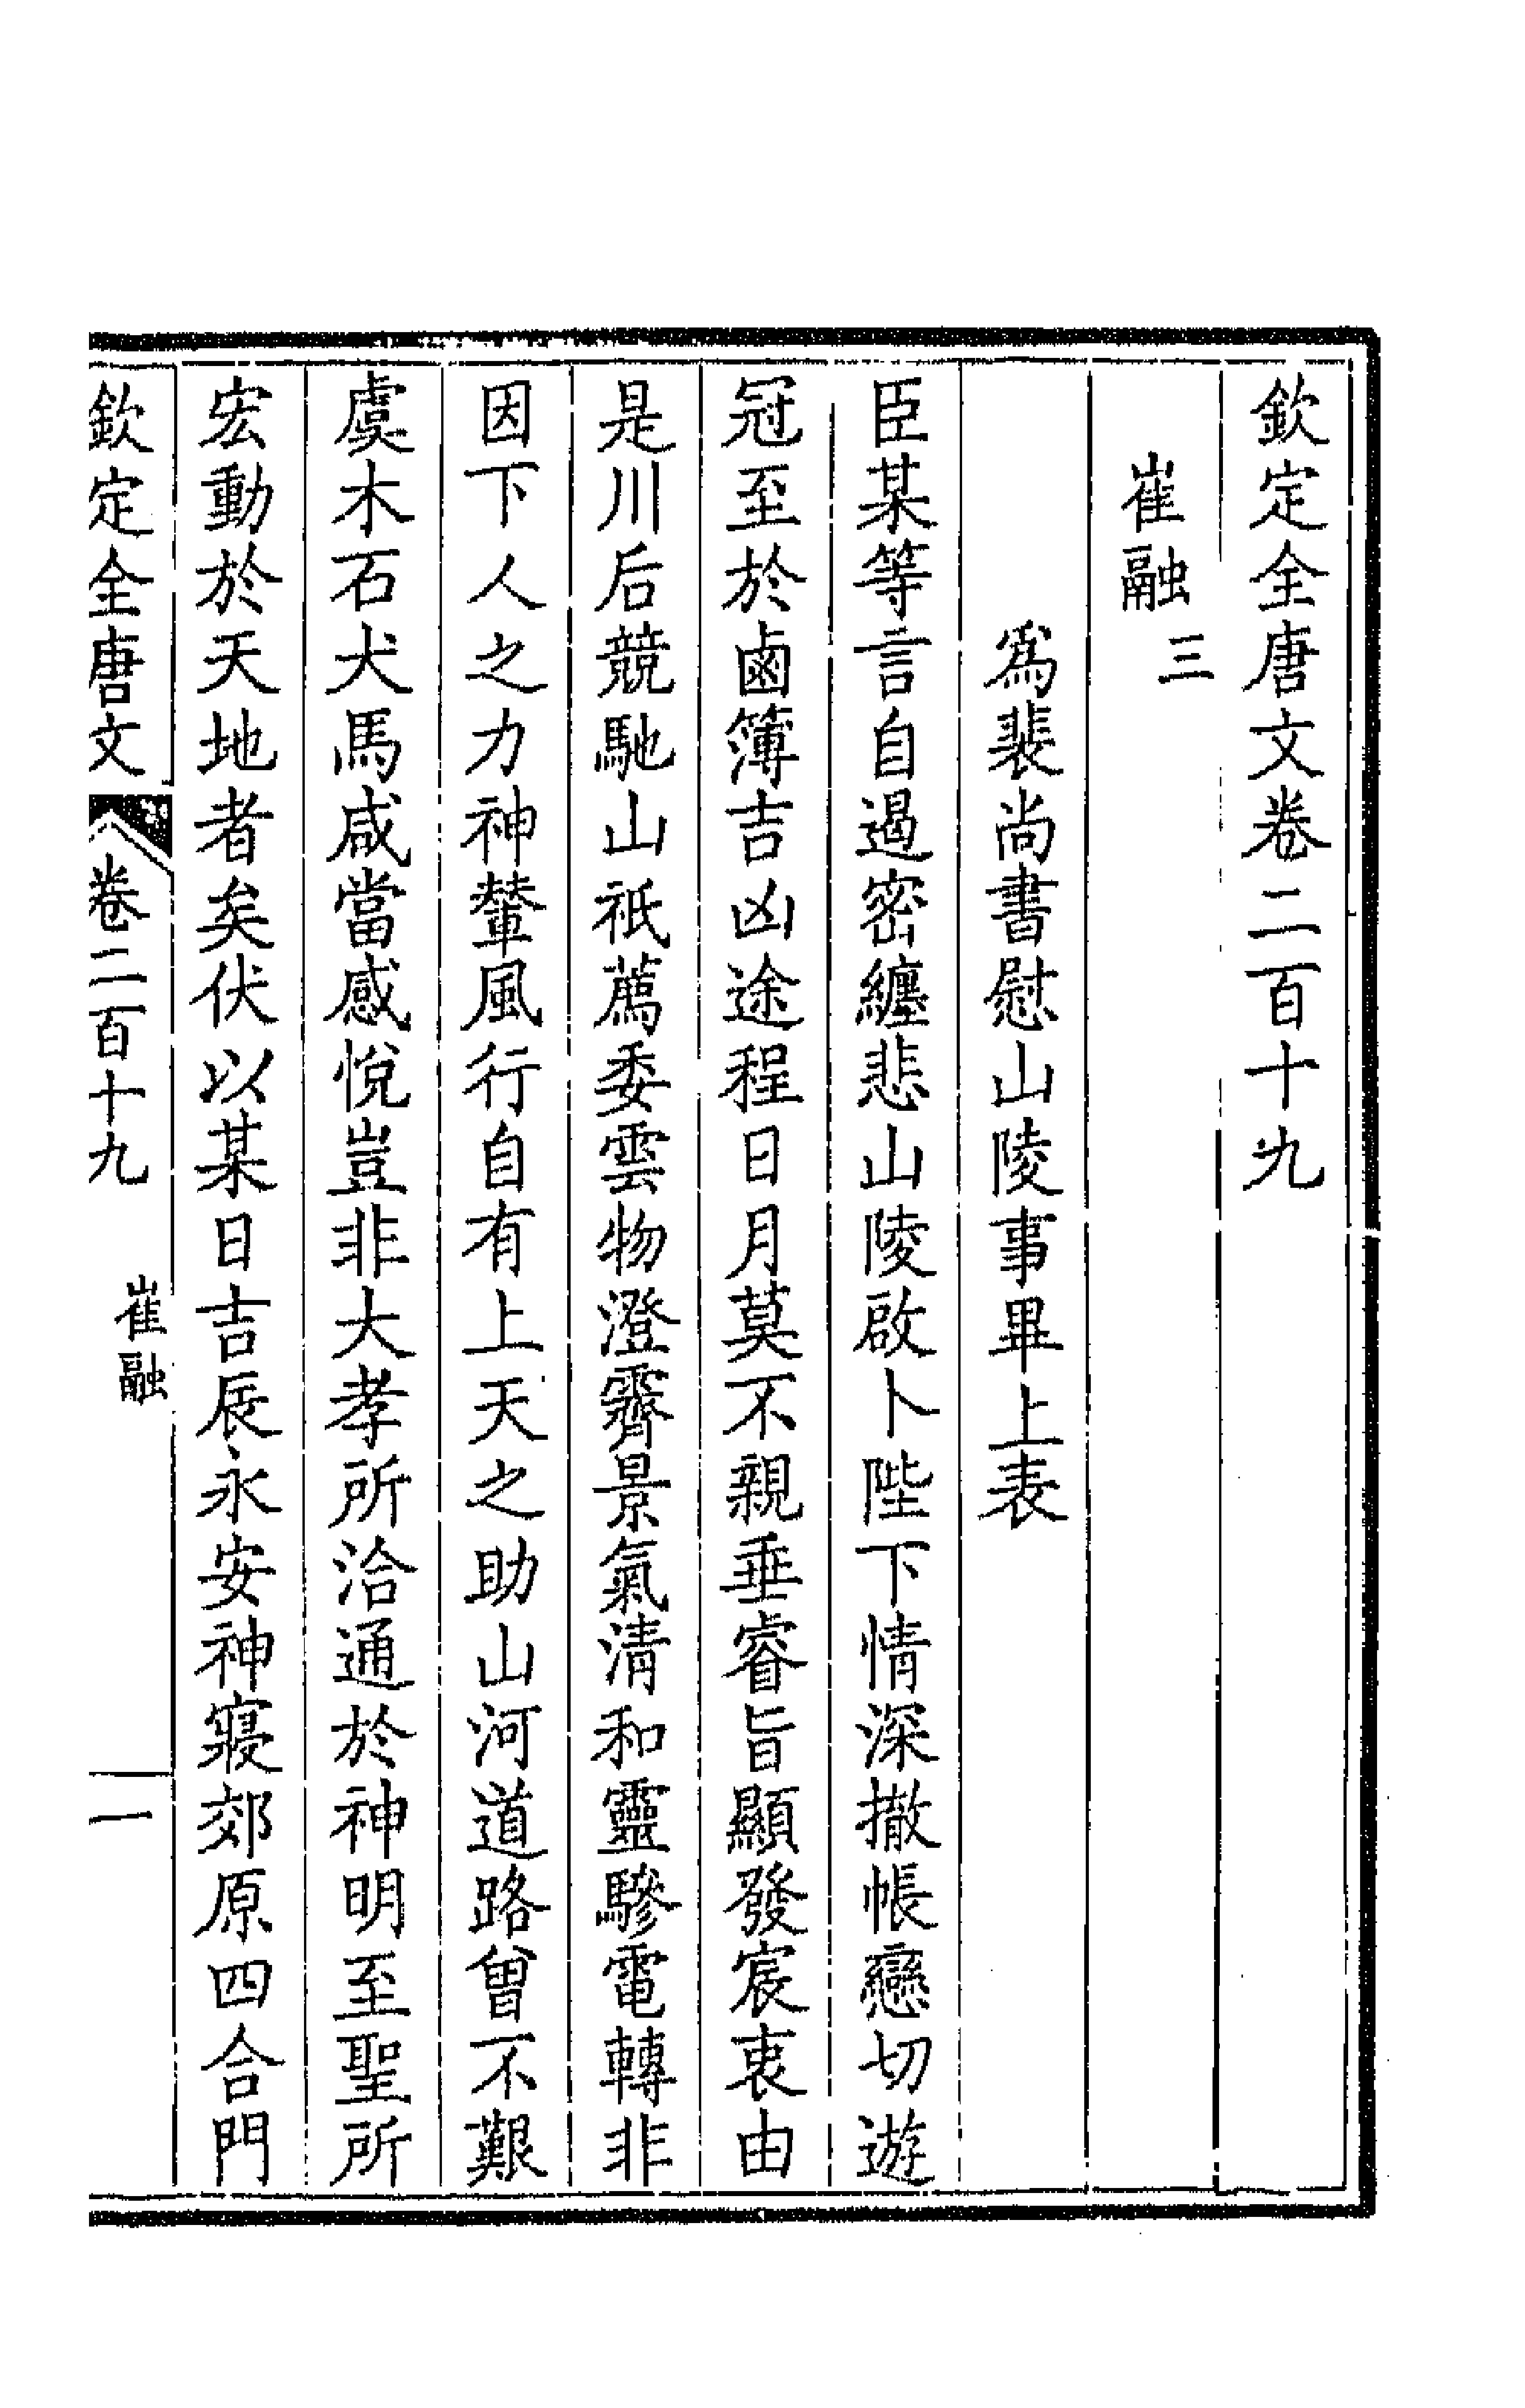 欽定全唐文卷二百十九
崔融三
爲裴尚書慰山陵事畢上表
臣某等言自遏密纏悲山陵啟卜陛下情深撤帳戀切遊
冠至於鹵簿吉凶途程日月莫不親垂睿旨顯發宸衷由
是川后競馳山祇薦委雲物澄霽景氣清和靈驂電轉非
因下人之力神輦風行自有上天之助山河道路曾不艱
虞木石犬馬咸當感悅豈非大孝所洽通於神明至聖所
宏動於天地者矣伏以某日吉辰永安神寢郊原四合門
欽定全唐文 卷二百十九 崔融 一